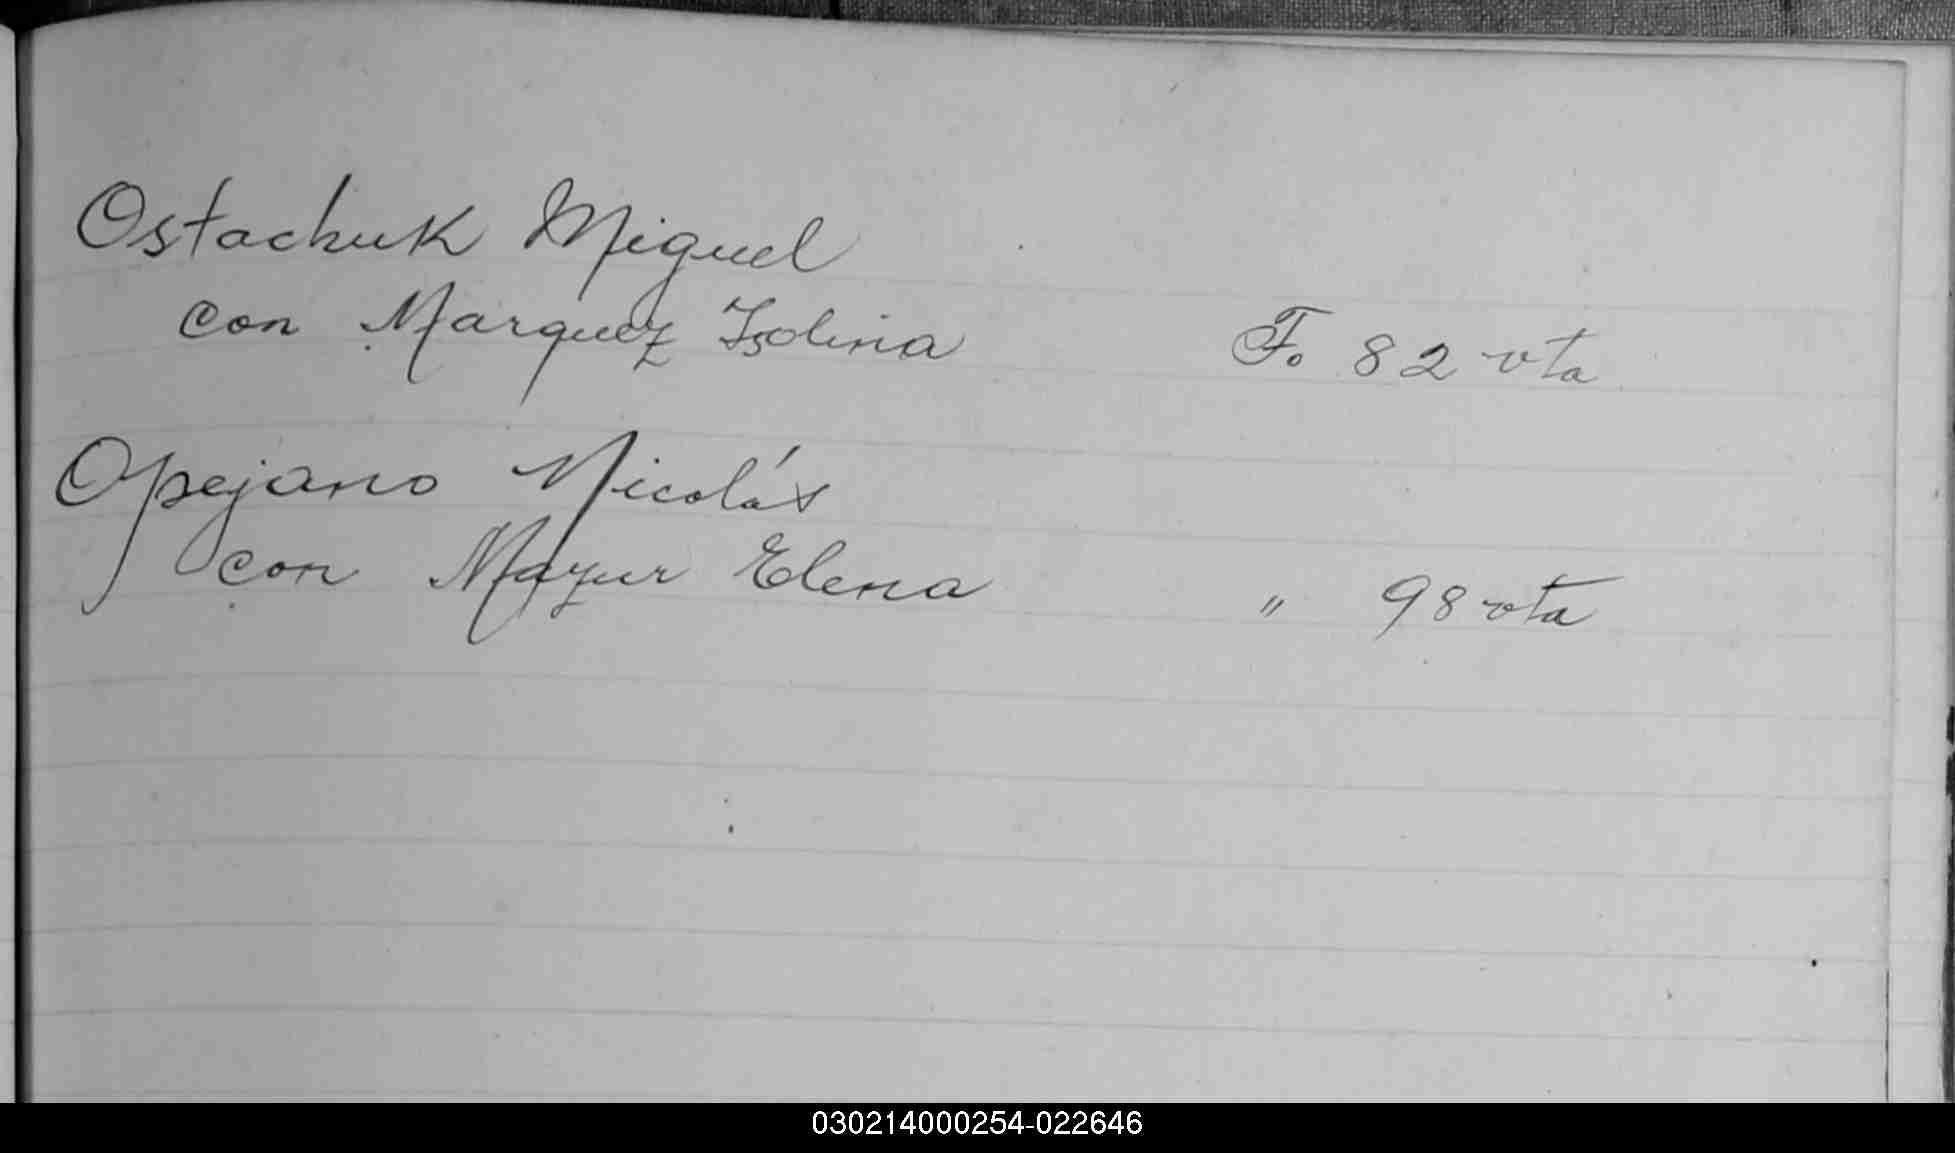 Ostachuk Miguel
con Marquez Izolina F. 82 vta
Opejano Nicolás
con Mazur Elena " 98 vta
030214000254-022646